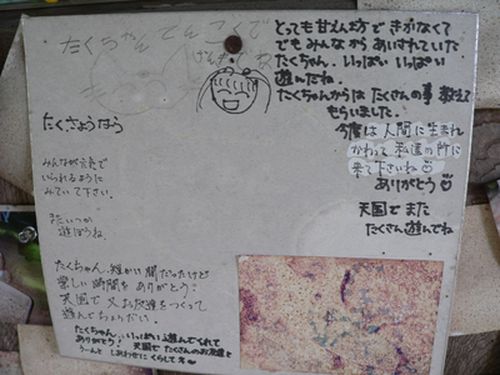 たくちゃん てんごくで
げんきでね
とっても甘えん坊で きかなくて
でも みんなから あいされていた
たくちゃん。いっぱい いっぱい
遊んだね。
たくちゃんからは たくさんの事 教えて
もらいました。
今度は 人間に生まれ
かわって 私達の所に
来て下さいね
ありがとう
天国で また
たくさん遊んでね
たくさようなら
みんなが元気で
いられるように
みていて下さい。
またいつか
遊ぼうね。
たくちゃん、短かい間だったけど
楽しい時間を ありがとう!
天国で 又お友達をつくって
遊んでちょうだい。
たくちゃん、いっぱい遊んでくれて
ありがとう! 天国で たくさんのお友達と
うーんと しあわせに くらしてネ